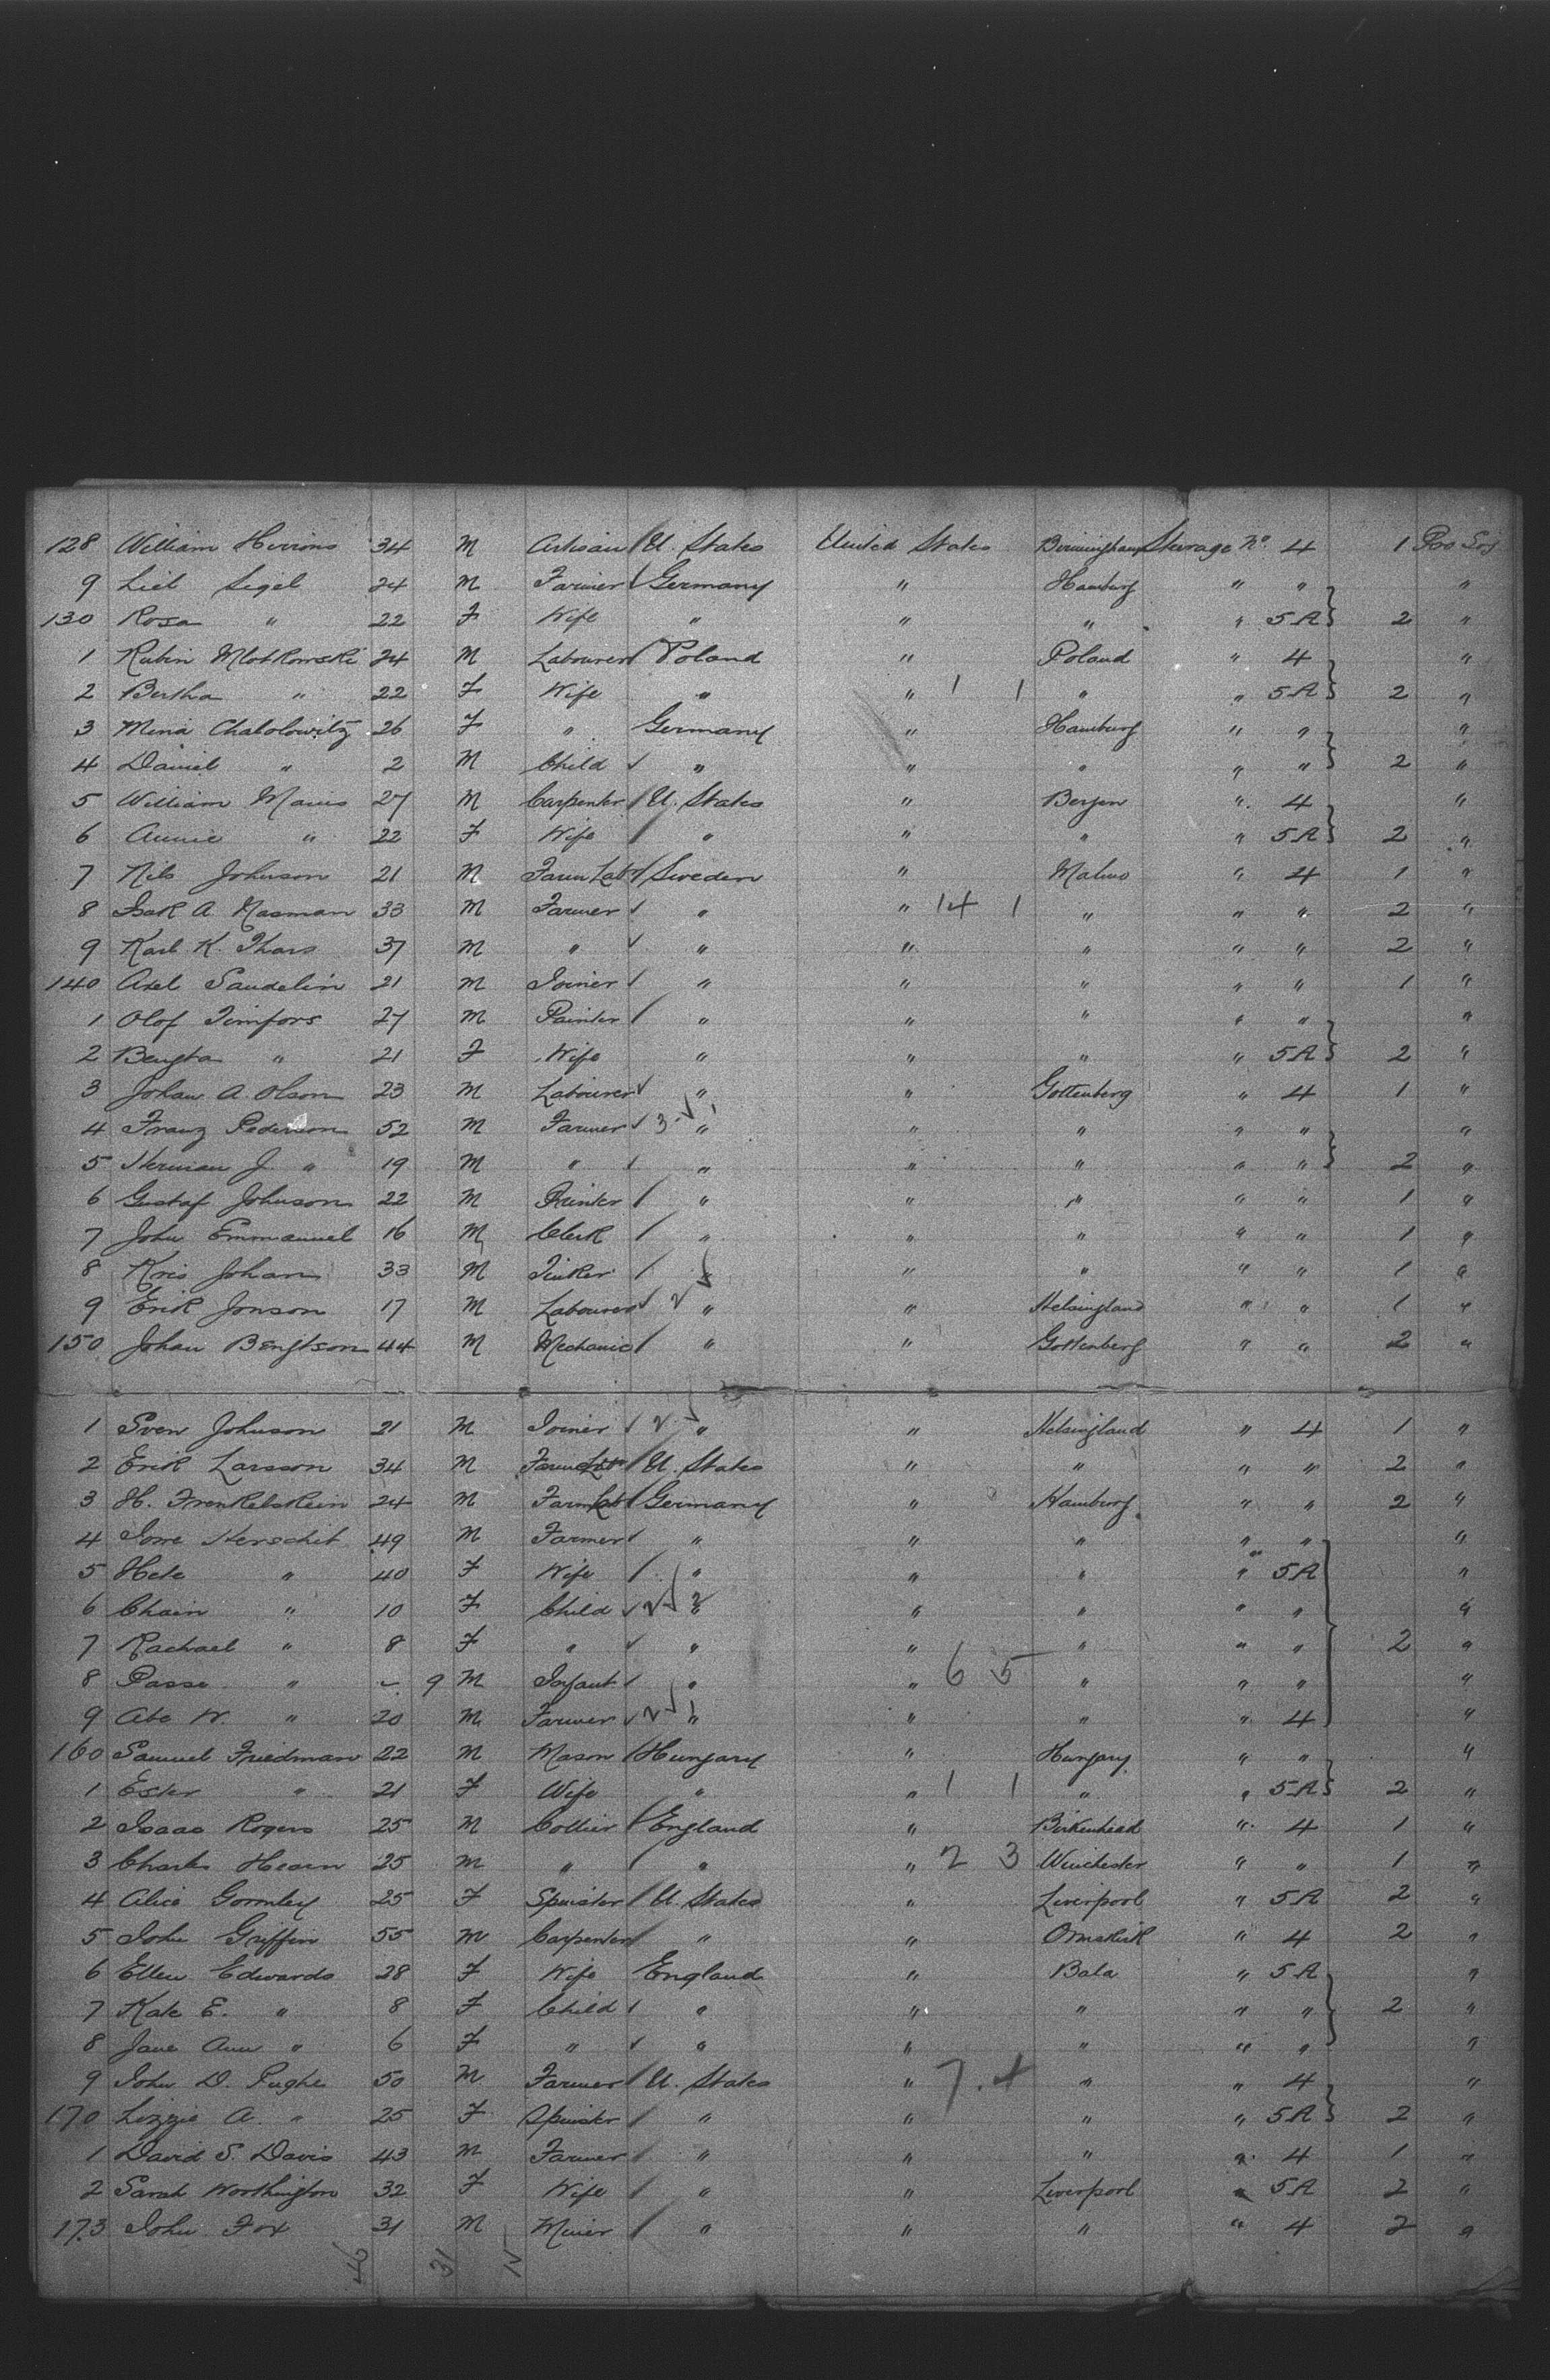 128 William Hirions 34 M Artisan / U. States United States Birmingham Steerage No. 4 1 Pro Soj
9 Lieb Sigel 24 M Farmer ✓ Germany " Hamburg " " "
130 Rosa " 22 F Wife " " " " 5A } 2 "
1 Rubin Mlotkowski 24 M Labourer Poland " Poland " 4 "
2 Bertha " 22 F Wife " " 1 1 " " 5A } 2 "
3 Mina Chabolowitz 26 F " Germany " Hamburg " " "
4 Daniel " 2 M Child ✓ " " " " " } 2 "
5 William Manis 27 M Carpenter / U. States " Bergen " 4 "
6 Annie " 22 F Wife / " " " " 5A } 2 "
7 Nils Johnson 21 M Farm Labr / Sweden " Malmo " 4 1 "
8 Isak A. Masman 33 M Farmer ✓ " " 14 1 " " " 2 "
9 Karl K. Thars 37 M " ✓ " " " " " 2 "
140 Axel Sandelin 21 M Joiner / " " " " " 1 "
1 Olof Timfors 27 M Painter / " " " " " "
2 Bengta " 21 F Wife " " " " 5A } 2 "
3 Johan A. Olson 23 M Labourer ✓ " " Gottenberg " 4 1 "
4 Franz Pederson 52 M Farmer ✓ 3 ✓ 1 " " " " " "
5 Herman J. " 19 M " ✓ " " " " " } 2 "
6 Gustaf Johnson 22 M Printer / " " " " " 1 "
7 John Emmanuel 16 M Clerk / " " " " " 1 "
8 Kris Johan 33 M Tinker / " " " " " 1 "
9 Erik Jonson 17 M Labourer ✓ 2 ✓ " " Helsingland " " 1 "
150 Johan Bengtson 44 M Mechanic / " " Gottenberg " " 2 "
1 Sven Johnson 21 M Joiner ✓ 2 ✓ " " Helsingland " 4 1 "
2 Erik Larsson 34 M Farm Labr / U. States " " " " 2 "
3 H. Frenkelskein 24 M Farm Lab / Germany " Hamburg " " 2 "
4 Herschit 49 M Farmer ✓ " " " " " "
5 Hele " 40 F Wife / " " " " 5A "
6 Chain " 10 F Child ✓ 2 ✓ 2 " " " " " "
7 Rachael " 8 F " ✓ " " " " " } 2 "
8 Passe " - 9 M Infant ✓ " " 6 5 " " " "
9 Abe W. " 20 M Farmer ✓ 2 ✓ 1 " " " " 4 "
160 Samuel Friedman 22 M Mason / Hungary " Hungary " " "
1 Ester " 21 F Wife " " 1 1 " " 5A } 2 "
2 Isaac Rogers 25 M Collier / England " Birkenhead " 4 1 "
3 Charles Hearn 25 M " / " " 2 3 Winchester " " 1 "
4 Alice Gormley 25 F Spinster / U. States " Liverpool " 5A 2 "
5 John Griffin 55 M Carpenter / " " Ormskirk " 4 2 "
6 Ellen Edwards 28 F Wife England " Bala " 5A "
7 Kate E. " 8 F Child ✓ " " " " " } 2 "
8 Jane Ann " 6 F " ✓ " " " " " "
9 John D. Pughe 50 M Farmer / U. States " 7.4 " " 4 "
170 Lizzie A. " 25 F Spinster / " " " " 5A } 2 "
1 David S. Davis 43 M Farmer / " " " " 4 1 "
2 Sarah Worthington 32 F Wife / " " Liverpool " 5A 2 "
173 John Fox 31 M Miner / " " " " 4 2 "
46 31